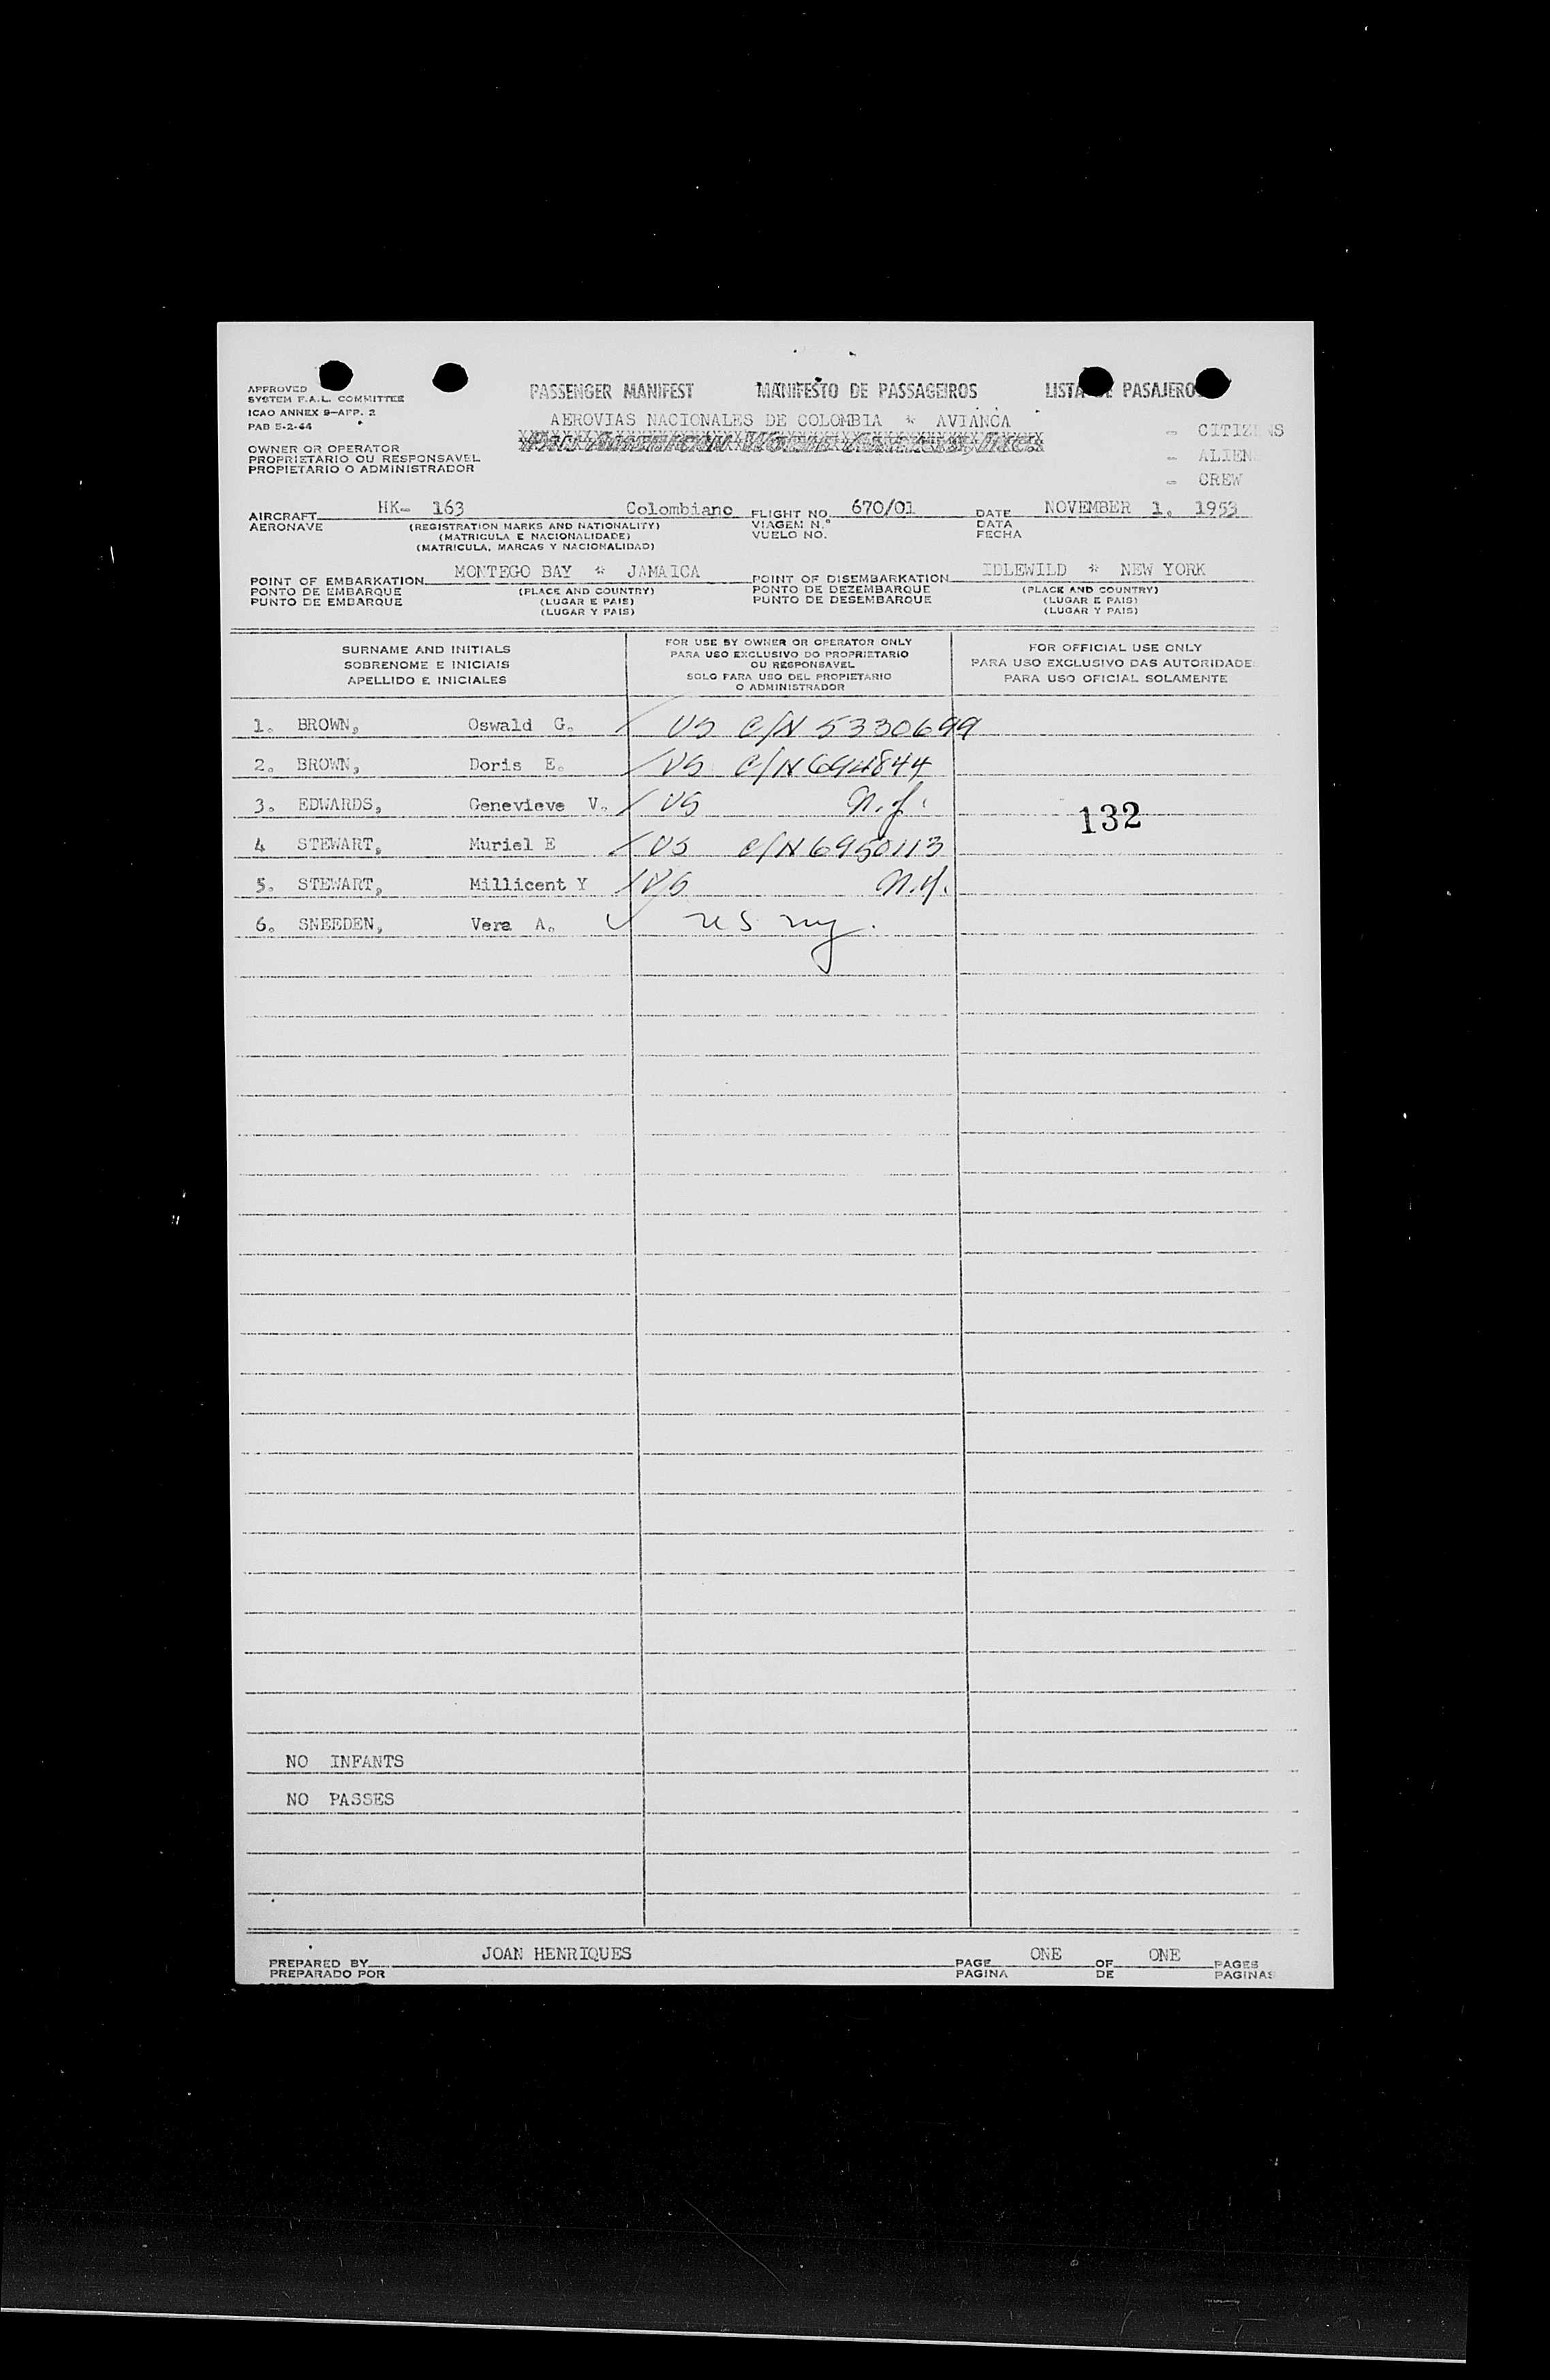 APPROVED
SYSTEM F.A.L. COMMITTEE
ICAO ANNEX 9-APP. 2
PAB 5-2-44
PASSENGER MANIFEST MANIFESTO DE PASSAGEIROS LISTA DE PASAJEROS
AEROVIAS NACIONALES DE COLOMBIA * AVIANCA
PAN AMERICAN WORLD AIRWAYS, INC.
- CITIZENS
- ALIENS
- CREW
OWNER OR OPERATOR
PROPRIETARIO OU RESPONSAVEL
PROPIETARIO O ADMINISTRADOR
AIRCRAFT HK- 163 Colombiano FLIGHT NO. 670/01 DATE NOVEMBER 1. 1953
AERONAVE (REGISTRATION MARKS AND NATIONALITY) VIAGEM N.º DATA
(MATRICULA E NACIONALIDADE) VUELO NO. FECHA
(MATRICULA, MARCAS Y NACIONALIDAD)
POINT OF EMBARKATION MONTEGO BAY * JAMAICA POINT OF DISEMBARKATION IDLEWILD * NEW YORK
PONTO DE EMBARQUE (PLACE AND COUNTRY) PONTO DE DEZEMBARQUE (PLACE AND COUNTRY)
PUNTO DE EMBARQUE (LUGAR E PAIS) PUNTO DE DESEMBARQUE (LUGAR E PAIS)
(LUGAR Y PAIS) (LUGAR Y PAIS)
SURNAME AND INITIALS
SOBRENOME E INICIAIS
APELLIDO E INICIALES
FOR USE BY OWNER OR OPERATOR ONLY
PARA USO EXCLUSIVO DO PROPRIETARIO
OU RESPONSAVEL
SOLO PARA USO DEL PROPIETARIO
O ADMINISTRADOR
FOR OFFICIAL USE ONLY
PARA USO EXCLUSIVO DAS AUTORIDADE
PARA USO OFICIAL SOLAMENTE
1. BROWN, Oswald G. / US C/N 5330699
2. BROWN, Doris E. / US C/N
3. EDWARDS, Genevieve V. / US
132
4 STEWART, Muriel E / US C/N 6950113
5. STEWART, Millicent Y / US
6. SNEEDEN, Vera A. ✓ US ny.
NO INFANTS
NO PASSES
PREPARED BY JOAN HENRIQUES PAGE ONE OF ONE PAGES
PREPARADO POR PAGINA DE PAGINAS